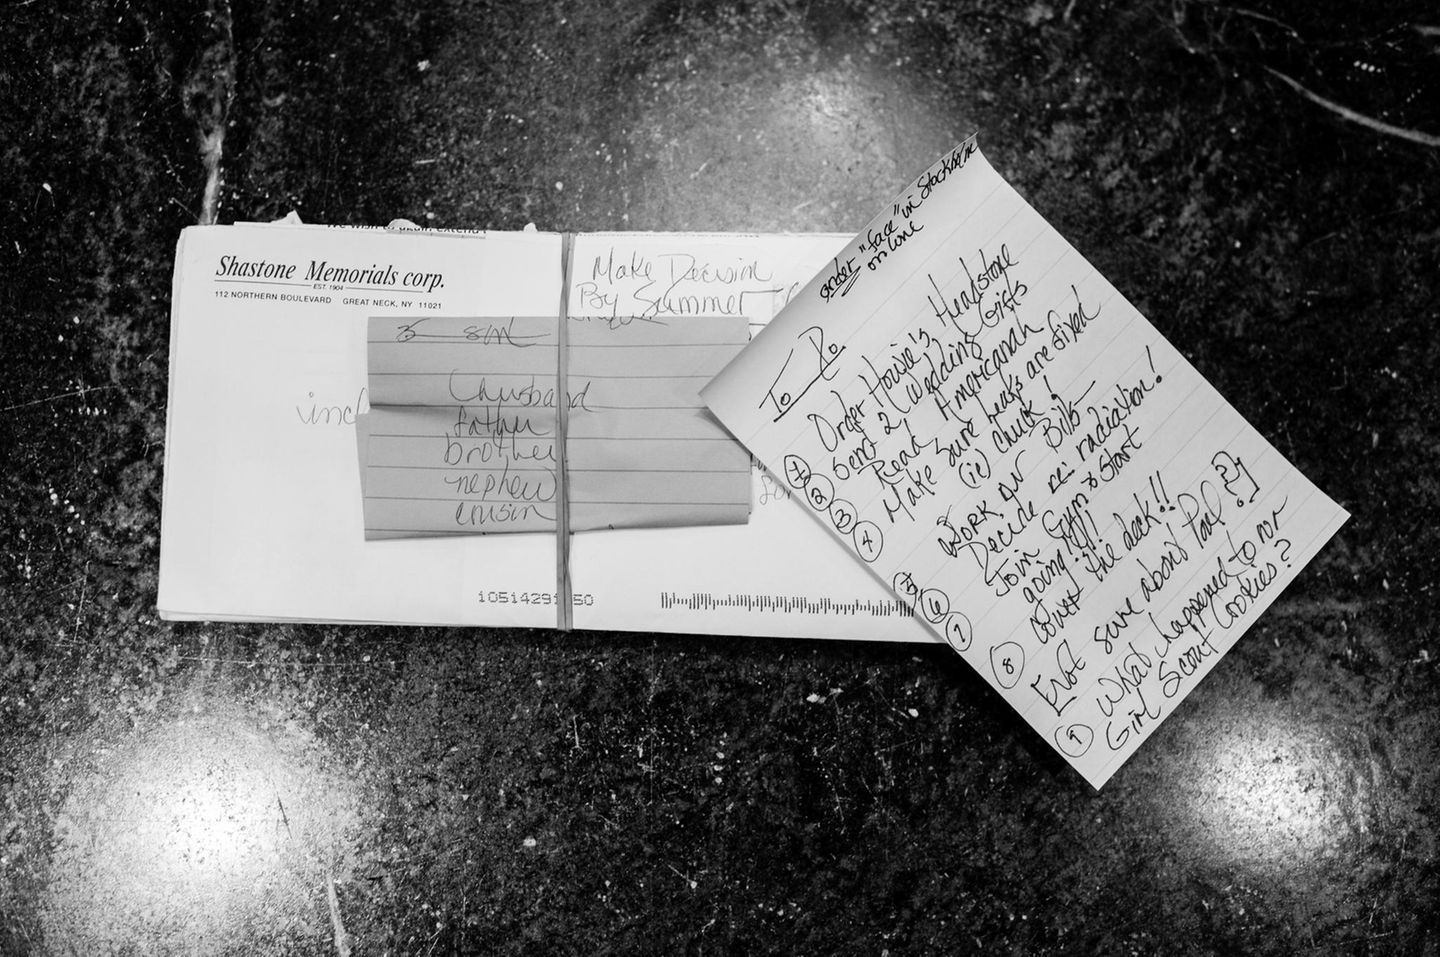 Shastone Memorials corp.
EST. 1904
112 NORTHERN BOULEVARD GREAT NECK, NY 11021
Make Decision
By Summer
husband
father
brother
nephew
cousin
10514291 50
order "face" in Stockholm
on line
To Do
1 Order Howie's Headstone
2 Send 2 wedding Gifts
3 Read Americanah
4 Make sure leaks are fixed
(ie) check!
5 Work on Bills
6 Decide re: radiation!
7 Join Gym & start
going!!!
8 cover the deck!!
[not sure about Pool ?]
9 What happened to our
Girl Scout Cookies?